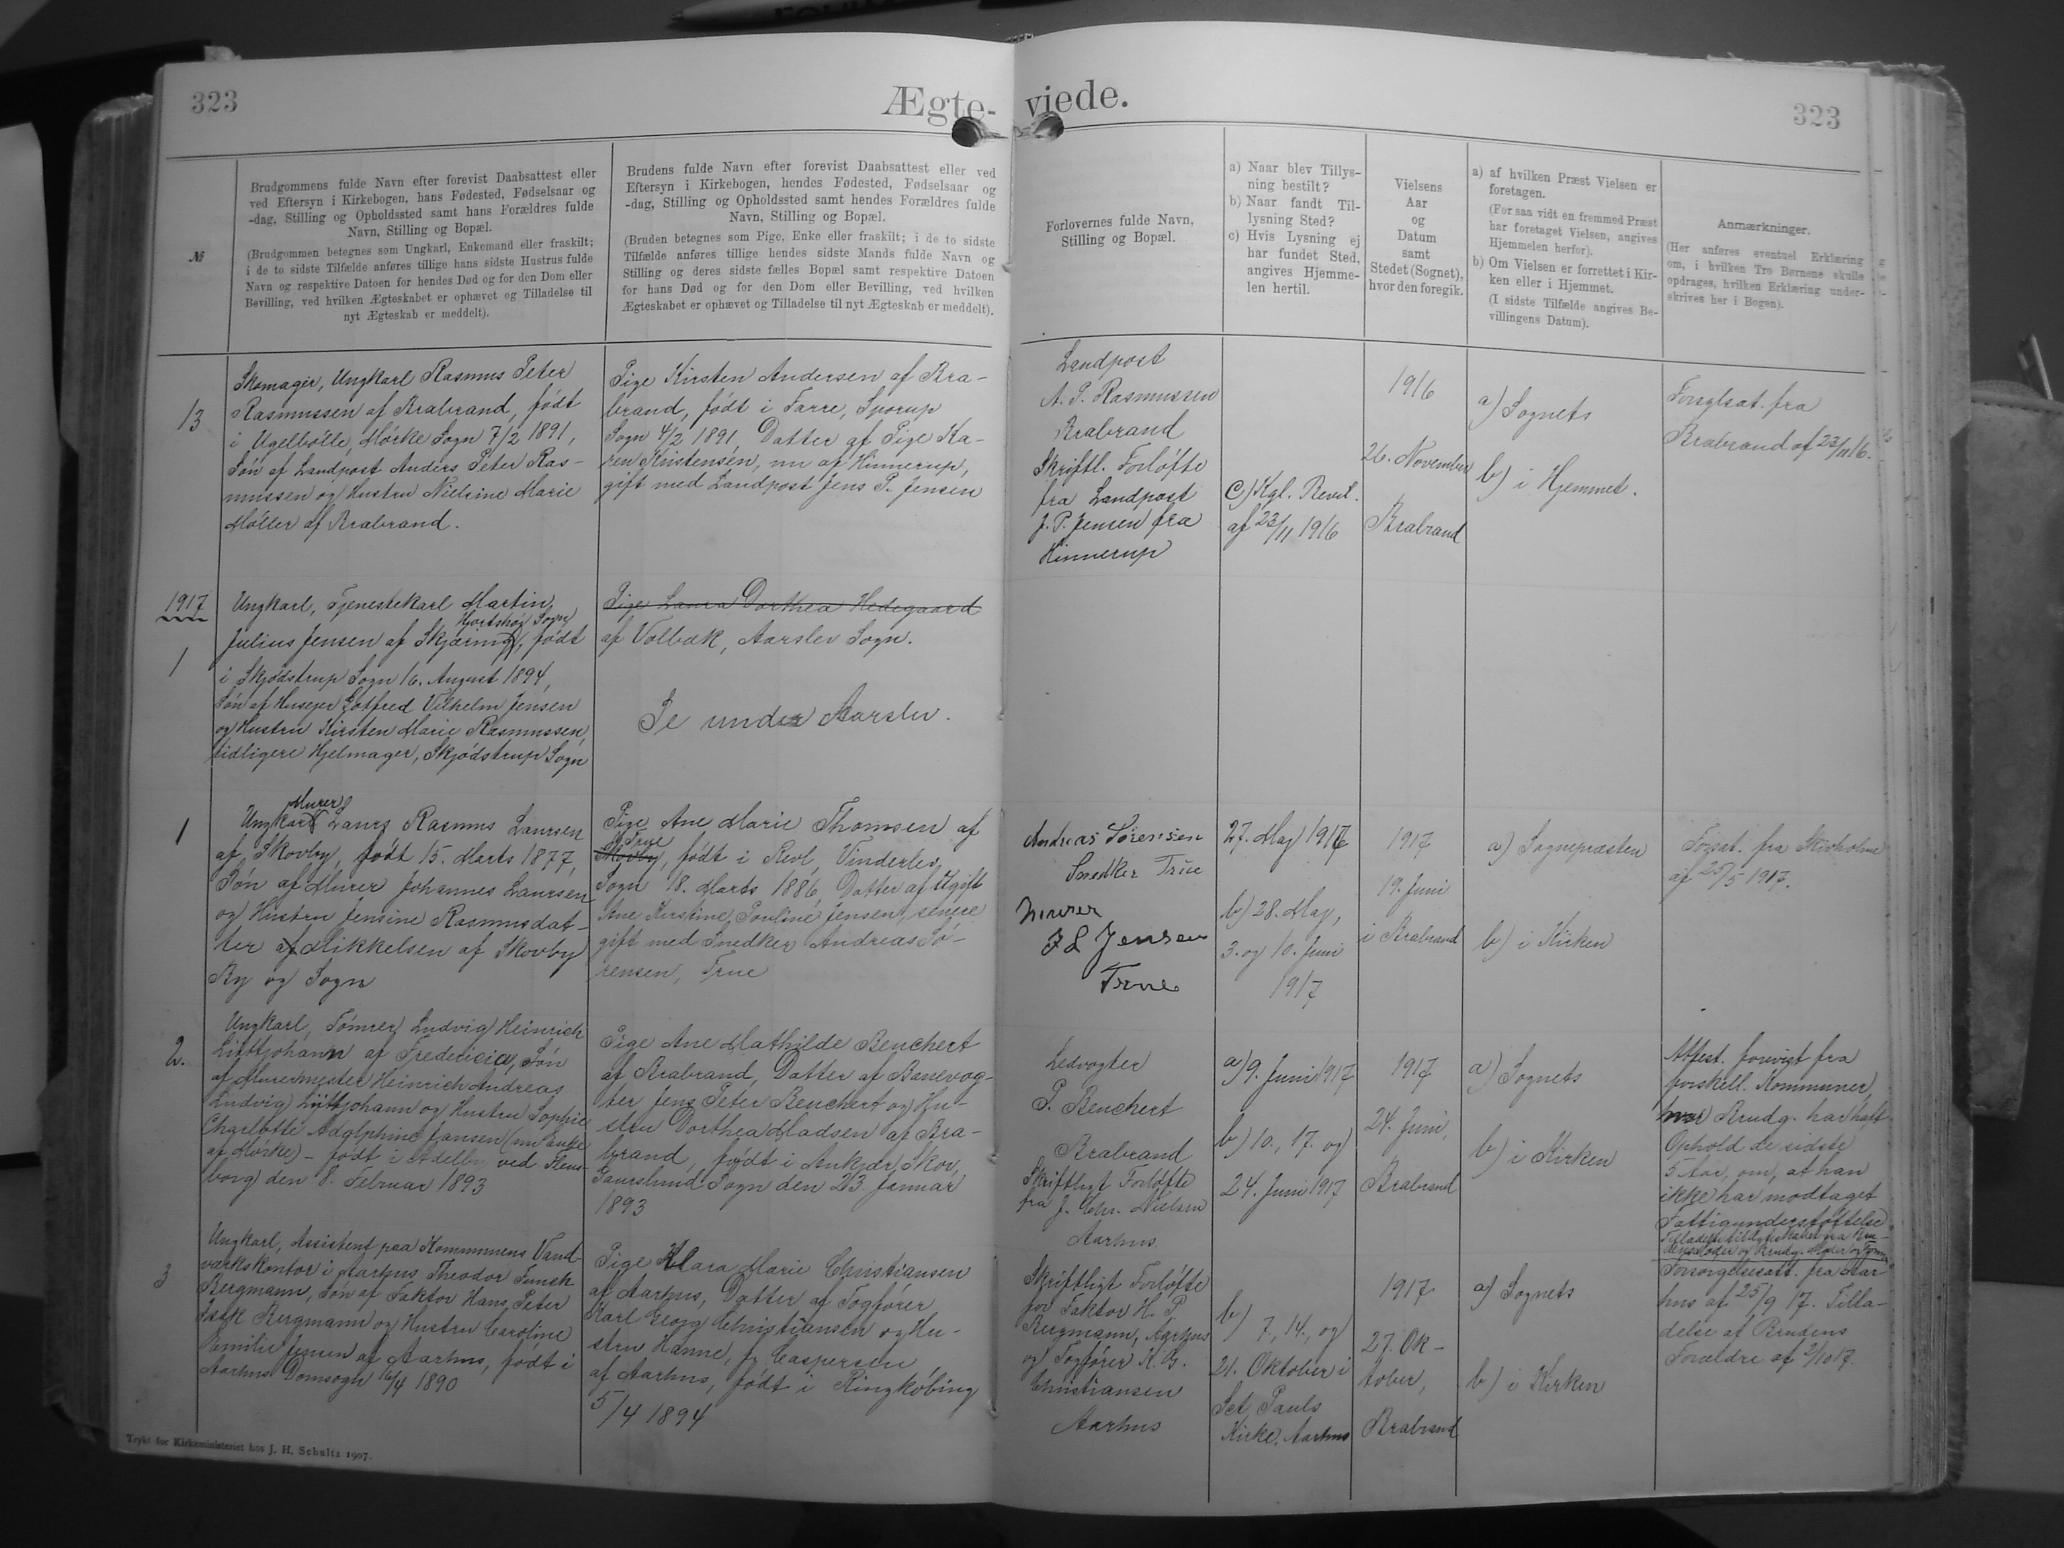 323
Ægte-
viede.
323
№
Brudgommens fulde Navn efter forevist Daabsattest eller
ved Eftersyn i Kirkebogen, hans Fødested, Fødselsaar og
-dag, Stilling og Opholdssted samt hans Forældres fulde
Navn, Stilling og Bopæl.
(Brudgommen betegnes som Ungkarl, Enkemand eller fraskilt;
i de to sidste Tilfælde anføres tillige hans sidste Hustrus fulde
Navn og respektive Datoen for hendes Død og for den Dom eller
Bevilling, ved hvilken Ægteskabet er ophævet og Tilladelse til
nyt Ægteskab er meddelt).
Brudens fulde Navn efter forevist Daabsattest eller ved
Eftersyn i Kirkebogen, hendes Fødested, Fødselsaar og
-dag, Stilling og Opholdssted samt hendes Forældres fulde
Navn, Stilling og Bopæl.
(Bruden betegnes som Pige, Enke eller fraskilt; i de to sidste
Tilfælde anføres tillige hendes sidste Mands fulde Navn og
Stilling og deres sidste fælles Bopæl samt respektive Datoen
for hans Død og for den Dom eller Bevilling, ved hvilken
Ægteskabet er ophævet og Tilladelse til nyt Ægteskab er meddelt).
Forlovernes fulde Navn,
Stilling og Bopæl.
a) Naar blev Tillys-
ning bestilt?
b) Naar fandt Til-
lysning Sted?
c) Hvis Lysning ej
har fundet Sted,
angives Hjemme-
len hertil.
Vielsens
Aar
og
Datum
samt
Stedet (Sognet),
hvor den foregik.
a) af hvilken Præst Vielsen er
foretagen.
(For saa vidt en fremmed Præst
har foretaget Vielsen, angives
Hjemmelen herfor).
b) Om Vielsen er forrettet i Kir-
ken eller i Hjemmet.
(I sidste Tilfælde angives Be-
villingens Datum).
Anmærkninger.
(Her anføres eventuel Erklæring
om, i hvilken Tro Børnene skulle
opdrages, hvilken Erklæring under-
skrives her i Bogen).
13
Skomager, Ungkarl Rasmus Peter
Rasmussen af Brabrand, født
i Ugelbølle, Mørke Sogn 7/2 1891,
Søn af Landpost Anders Peter Ras-
mussen og Hustru Nielsine Marie
Møller af Brabrand.
Pige Kirsten Andersen af Bra-
brand, født i Farre, Sporup
Sogn 4/2 1891, Datter af Pige Ka-
ren Kristensen, nu af Hinnerup,
gift med Landpost Jens P. Jensen
Landpost
A. P. Rasmussen
Brabrand
Skriftl. Forløfte
fra Landpost
J. P. Jensen fra
Hinnerup
c) Kgl. Bevil.
af 23/11 1916
1916
26. November
Brabrand
a) Sognets
b) i Hjemmet.
Forsglsat. fra
Brabrand af 23/11 16.
1917
1
Ungkarl, Tjenestekarl Martin
Hjortshøj Sogn
Julius Jensen af Skjæring, født
i Skjødstrup Sogn 16. August 1894,
Søn af Husejer Gotfred Vilhelm Jensen
og Hustru Kirsten Marie Rasmussen,
tidligere Hjelmager, Skjødstrup Sogn
Pige Laura Dorthea Hedegaard
af Volbæk, Aarslev Sogn.
Se under Aarslev.
1
Murer
Ungkarl Laurs Rasmus Laursen
af Skovby, født 15. Marts 1877,
Søn af Murer Johannes Laursen
og Hustru Jensine Rasmusdat-
ter af Mikkelsen af Skovby
By og Sogn
Pige Ane Marie Thomsen af
True
Skovby, født i Revl, Vinderslev
Sogn 18. Marts 1886, Datter af Ugift
Ane Kirstine Pouline Jensen, senere
gift med Snedker Andreas Sø-
rensen, True
Andreas Sørensen
Snedker True
Murer
J L Jensen
True
27. Maj 1917
b) 28. Maj,
3. og 10. Juni
1917
1917
19. Juni
i Brabrand
a) Sognepræsten
b) i Kirken
af 25/5 1917.
2.
Ungkarl, Tømrer Ludvig Heinrich
Lüttjohann af Fredericia, Søn
af Murermester Heinrich Andreas
Ludvig Lüttjohann og Hustru Sophie
Charlotte Adolphine Jansen (nu Enke
af Mørke) - født i Adelby ved Flens-
borg den 8. Februar 1893
Pige Ane Mathilde Benchert
af Brabrand, Datter af Banevog-
ter Jens Peter Benchert og Hu-
stru Dorthea Madsen af Bra-
brand, født i Ankjær Skov,
Gaurslund Sogn den 23. Januar
1893
Ledvogter
P. Benchert
Brabrand
Skriftligt Forløfte
fra J. Chr. Nielsen
Aarhus
a) 9. Juni 1917
b) 10., 17. og
24. Juni 1917
1917
24. Juni,
Brabrand
a) Sognets
b) i Kirken
Attest. forevist fra
forskell. Kommuner,
hvor Brudg. har haft
Ophold de sidste
5 Aar, om, at han
ikke har modtaget
Fattigunderstøttelse.
3
Ungkarl, Assistent paa Kommunens Vand-
værkskontor i Aarhus, Theodor Funch
Bergmann, Søn af Faktor Hans Peter
Bergmann og Hustru Caroline
Emilie Jensen af Aarhus, født i
Aarhus Domsogn 16/4 1890
Pige Klara Marie Christiansen
af Aarhus, Datter af Togfører
Karl Georg Christiansen og Hu-
stru Hanne, f. Caspersen
af Aarhus, født i Ringkøbing
5/4 1894
Skriftligt Forløfte
for Faktor H. P.
Bergmann, Aarhus
og Togfører K. G.
Christiansen
Aarhus
b) 7., 14., og
21. Oktober i
Sct Pauls
Kirke, Aarhus
1917
27. Ok-
tober,
Brabrand
a) Sognets
b) i Kirken
Forsørgelsesatt. fra Aar-
hus af 25/9 17. Tilla-
delse af Brudens
Forældre af 2/10 17.
Trykt for Kirkeministeriet hos J. H. Schultz 1907.